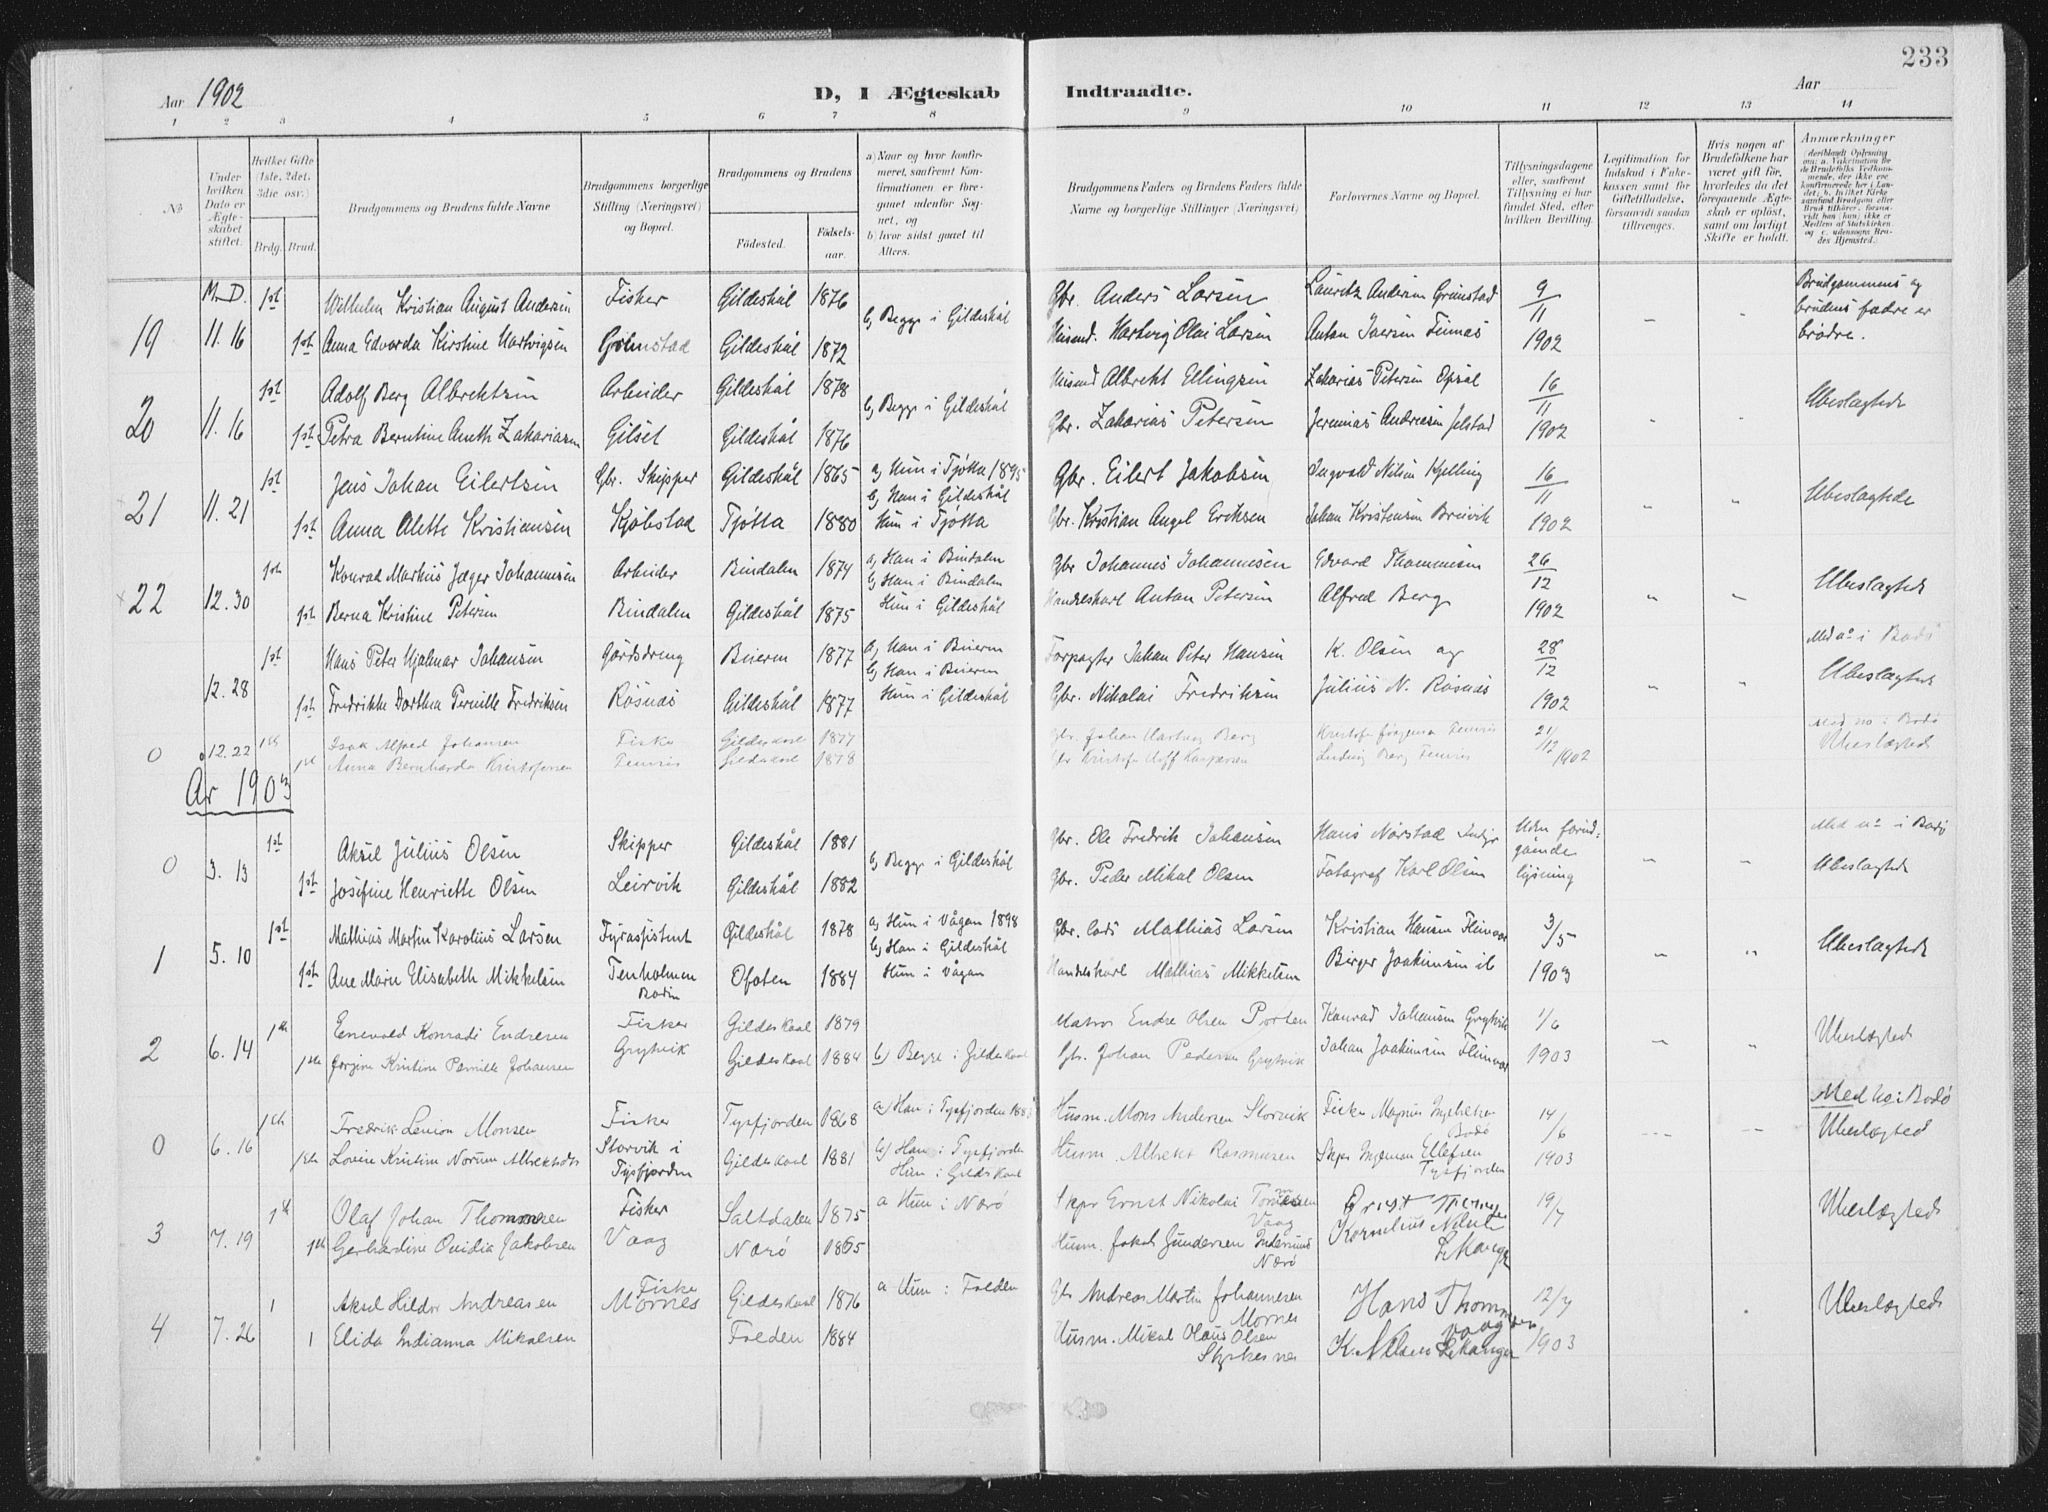 233
Aar 1902
D, I Ægteskab Indtraadte.
Aar
1 2 3 4 5 6 7 8 9 10 11 12 13 14
No
Under hvilken Dato er Ægteskabet stiftet.
Hvilket Gifte (1ste, 2det, 3die osv.)
Brdg. Brud.
Brudgommens og Brudens fulde Navne
Brudgommens borgerlige Stilling (Næringsvei) og Bopæl.
Brudgommens og Brudens
Fødested.
Fødselsaar.
a) Naar og hvor konfirmeret, saafremt Konfirmationen er foregaaet udenfor Sognet, og
b) hvor sidst gaaet til Alters.
Brudgommens Faders og Brudens Faders fulde Navne og borgerlige Stillinger (Næringsvei)
Forlovernes Navne og Bopæl.
Tillysningsdagene eller, saafremt Tillysning ei har fundet Sted, efter hvilken Bevilling.
Legitimation for Indskud i Enkekassen samt for Giftetilladelse, forsaavidt saadan tiltrænges.
Hvis nogen af Brudefolkene har været gift før, hvorledes da det foregaaende Ægteskab er opløst, samt om lovligt Skifte er holdt.
Anmærkninger (deriblandt Oplysning om: a. Vakcination for de Brudefolks Vedkommende, der ikke ere konfirmerede her i Landet; b. hvilket Kirkesamfund Brudgom eller Brud tilhører, forsaavidt han (hun) ikke er Medlem af Statskirken, og c. udensogns Brudes Hjemsted.)
M. D. 1st Wilhelm Kristian August Andersen Fisker Gildeskål 1876 b, Begge i Gildeskål Gbr. Anders Larsen Lauritz Andersen Grimstad 9/11 Brudgommens og brudens fædre er brødre.
19 11.16 1st Anna Edvarda Kirstine Hartvigsen Grimstad Gildeskål 1872 Husmd. Hartvig Olai Larsen Anton Iversen Finnæs 1902
1st Adolf Berg Albrektsen Arbeider Gildeskål 1878 b, Begge i Gildeskål Husmd Albrekt Ellingsen Zakarias Petersen Opsal 16/11 Ubeslægtede
20 11.16 1st Petra Berntine Aneth Zakariasen Gilset Gildeskål 1876 Gbr. Zakarias Petersen Jeremias Andreasen Jelstad 1902
1st Jens Johan Eilertsen Gbr. Skipper Gildeskål 1865 a, Hun i Tjøtta 1895 Gbr. Eilert Jakobsen Ingvald Nilsen Kjelling 16/11 Ubeslægtede
b, Han i Gildeskål
21 11.21 1st Anna Alette Kristiansen Kjøbstad Tjøtta 1880 Hun i Tjøtta Gbr. Kristian Angel Eriksen Johan Kristensen Breivik 1902
1st Konrad Markus Jæger Johannesen Arbeider Bindalen 1874 a, Han i Bindalen Gbr Johannes Johannesen Edvard Thommesen 26/12 Ubeslægtede
b, Han i Bindalen
22 12.30 1st Berna Kristine Petersen Bindalen Gildeskål 1875 Hun i Gildeskål Handelskarl Anton Petersen Alfred Berg 1902
1st Hans Peter Hjalmar Johansen Gårdsdreng Beieren 1877 a, Han i Beieren Forpagter Johan Peter Hansen K. Olsen og 28/12 Med no i Bodø
b, Han i Beieren Ubeslægtede
12.28 1st Fredrikke Dorthea Pernille Fredriksen Røsnæs Gildeskål 1877 Hun i Gildeskål Gbr. Nikolai Fredriksen Julius N. Røsnæs 1902
0 12.22 1st Isak Alfred Johansen Fisker Gildeskaal 1877 Gbr. Johan Hartvig Berg 21/12 Med no i Bodø
1st Anna Bernharda Kristofersen Gildeskaal 1878 Ludvig Berg 1902 Ubeslægtede
År 1903
1st Aksel Julius Olsen Skipper Gildeskål 1881 b, Begge i Gildeskål Gbr. Ole Fredrik Johansen Hans Nørstad Uden forudgående lysning Med no i Bodø
0 3.13 1st Josefine Henriette Olsen Leirvik Gildeskål 1882 Gbr. Peder Mikal Olsen Fotograf Karl Olsen Ubeslægtede
1st Mathias Martin Karolius Larsen Fyrassistent Gildeskål 1878 a, Hun i Vågan 1898 Gbr. Mathias Larsen Kristian Hansen Fleinvær 3/5 Ubeslægtede
b, Han i Gildeskål
1 5.10 1st Ane Marie Elisabeth Mikkelsen Tenholmen Bodin Ofoten 1884 Hun i Vågan Handelskarl Mathias Mikkelsen Birger Joakimsen ib 1903
1st Enevald Konradi Endresen Fisker Gildeskaal 1879 Matros Endre Olsen Porten Konrad Johansen Grytvik 1/6 Ubeslægtede
2 6.14 1ste Jørgine Kristine Pernille Johansen Grytvik Gildeskaal 1884 b) Begge i Gildeskaal Gbr. Johan Pedersen Grytvik Johan Joakimsen Fleinvær 1903
1ste Fredrik Monsen Fisker Tysfjorden 1868 a) Han i Tysfjorden Husm. Mons Andersen Storvik Fisker Magnus Bodø 14/6 Med no i Bodø
0 6.16 1ste Lovise Kristine Norum Albrektsdtr Storvik i Tysfjorden Gildeskaal 1881 b) Han i Tysfjorden Husm. Albrekt Rasmussen Skpr Ingeman Ellefsen Tysfjorden 1903 Ubeslægted
Hun i Gildeskaal
1st Olaf Johan Thommesen Fisker Saltdalen 1875 a Hun i Nærø Skpr Ernst Nikolai Tommesen Vaag 19/7 Ubeslægted
3 7.19 1st Gerhardine Ovidia Jakobsen Vaag Nærø 1865 Husm. Jakob Gundersen Nærø Kornelius Lekanger
1 Aksel Hildor Andreasen Fisker Mornes Gildeskaal 1876 a Hun i Folden Gbr Andreas Martin Johannesen Mornes Hans Thommesen Vaag 12/7 Ubeslægted
4 7.26 1 Elida Indianna Mikalsen Folden 1884 Husm. Mikal Olaus Olsen Styrkesnes K. Nilsen Lekanger 1903